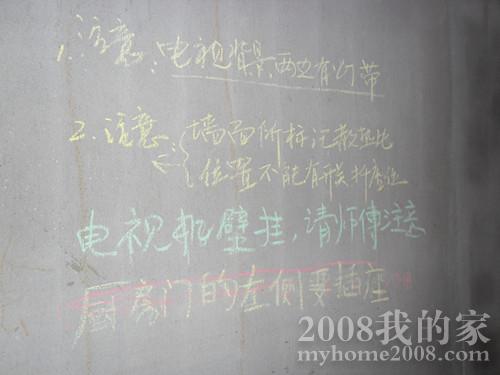 1.注意、电视背景两边有灯带
2.注意 墙面所标记散热片
位置不能有开关插座位
电视机壁挂,请师傅注意
厨房门的左侧要插座
2008我的家
myhome2008.com